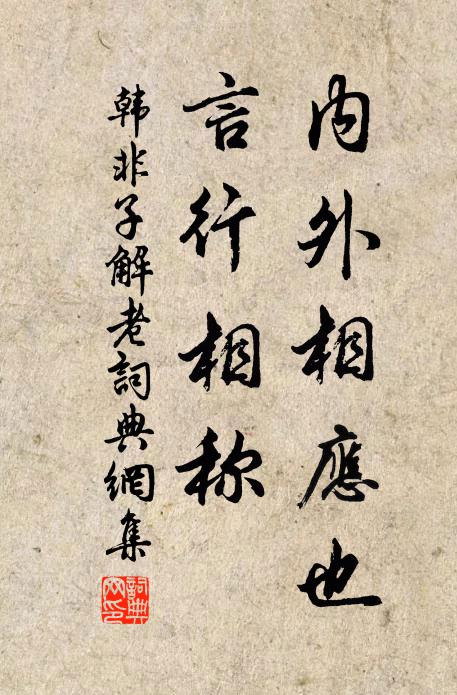 内外相應也
言行相称
韩非子解老詞典網集
詞典网印